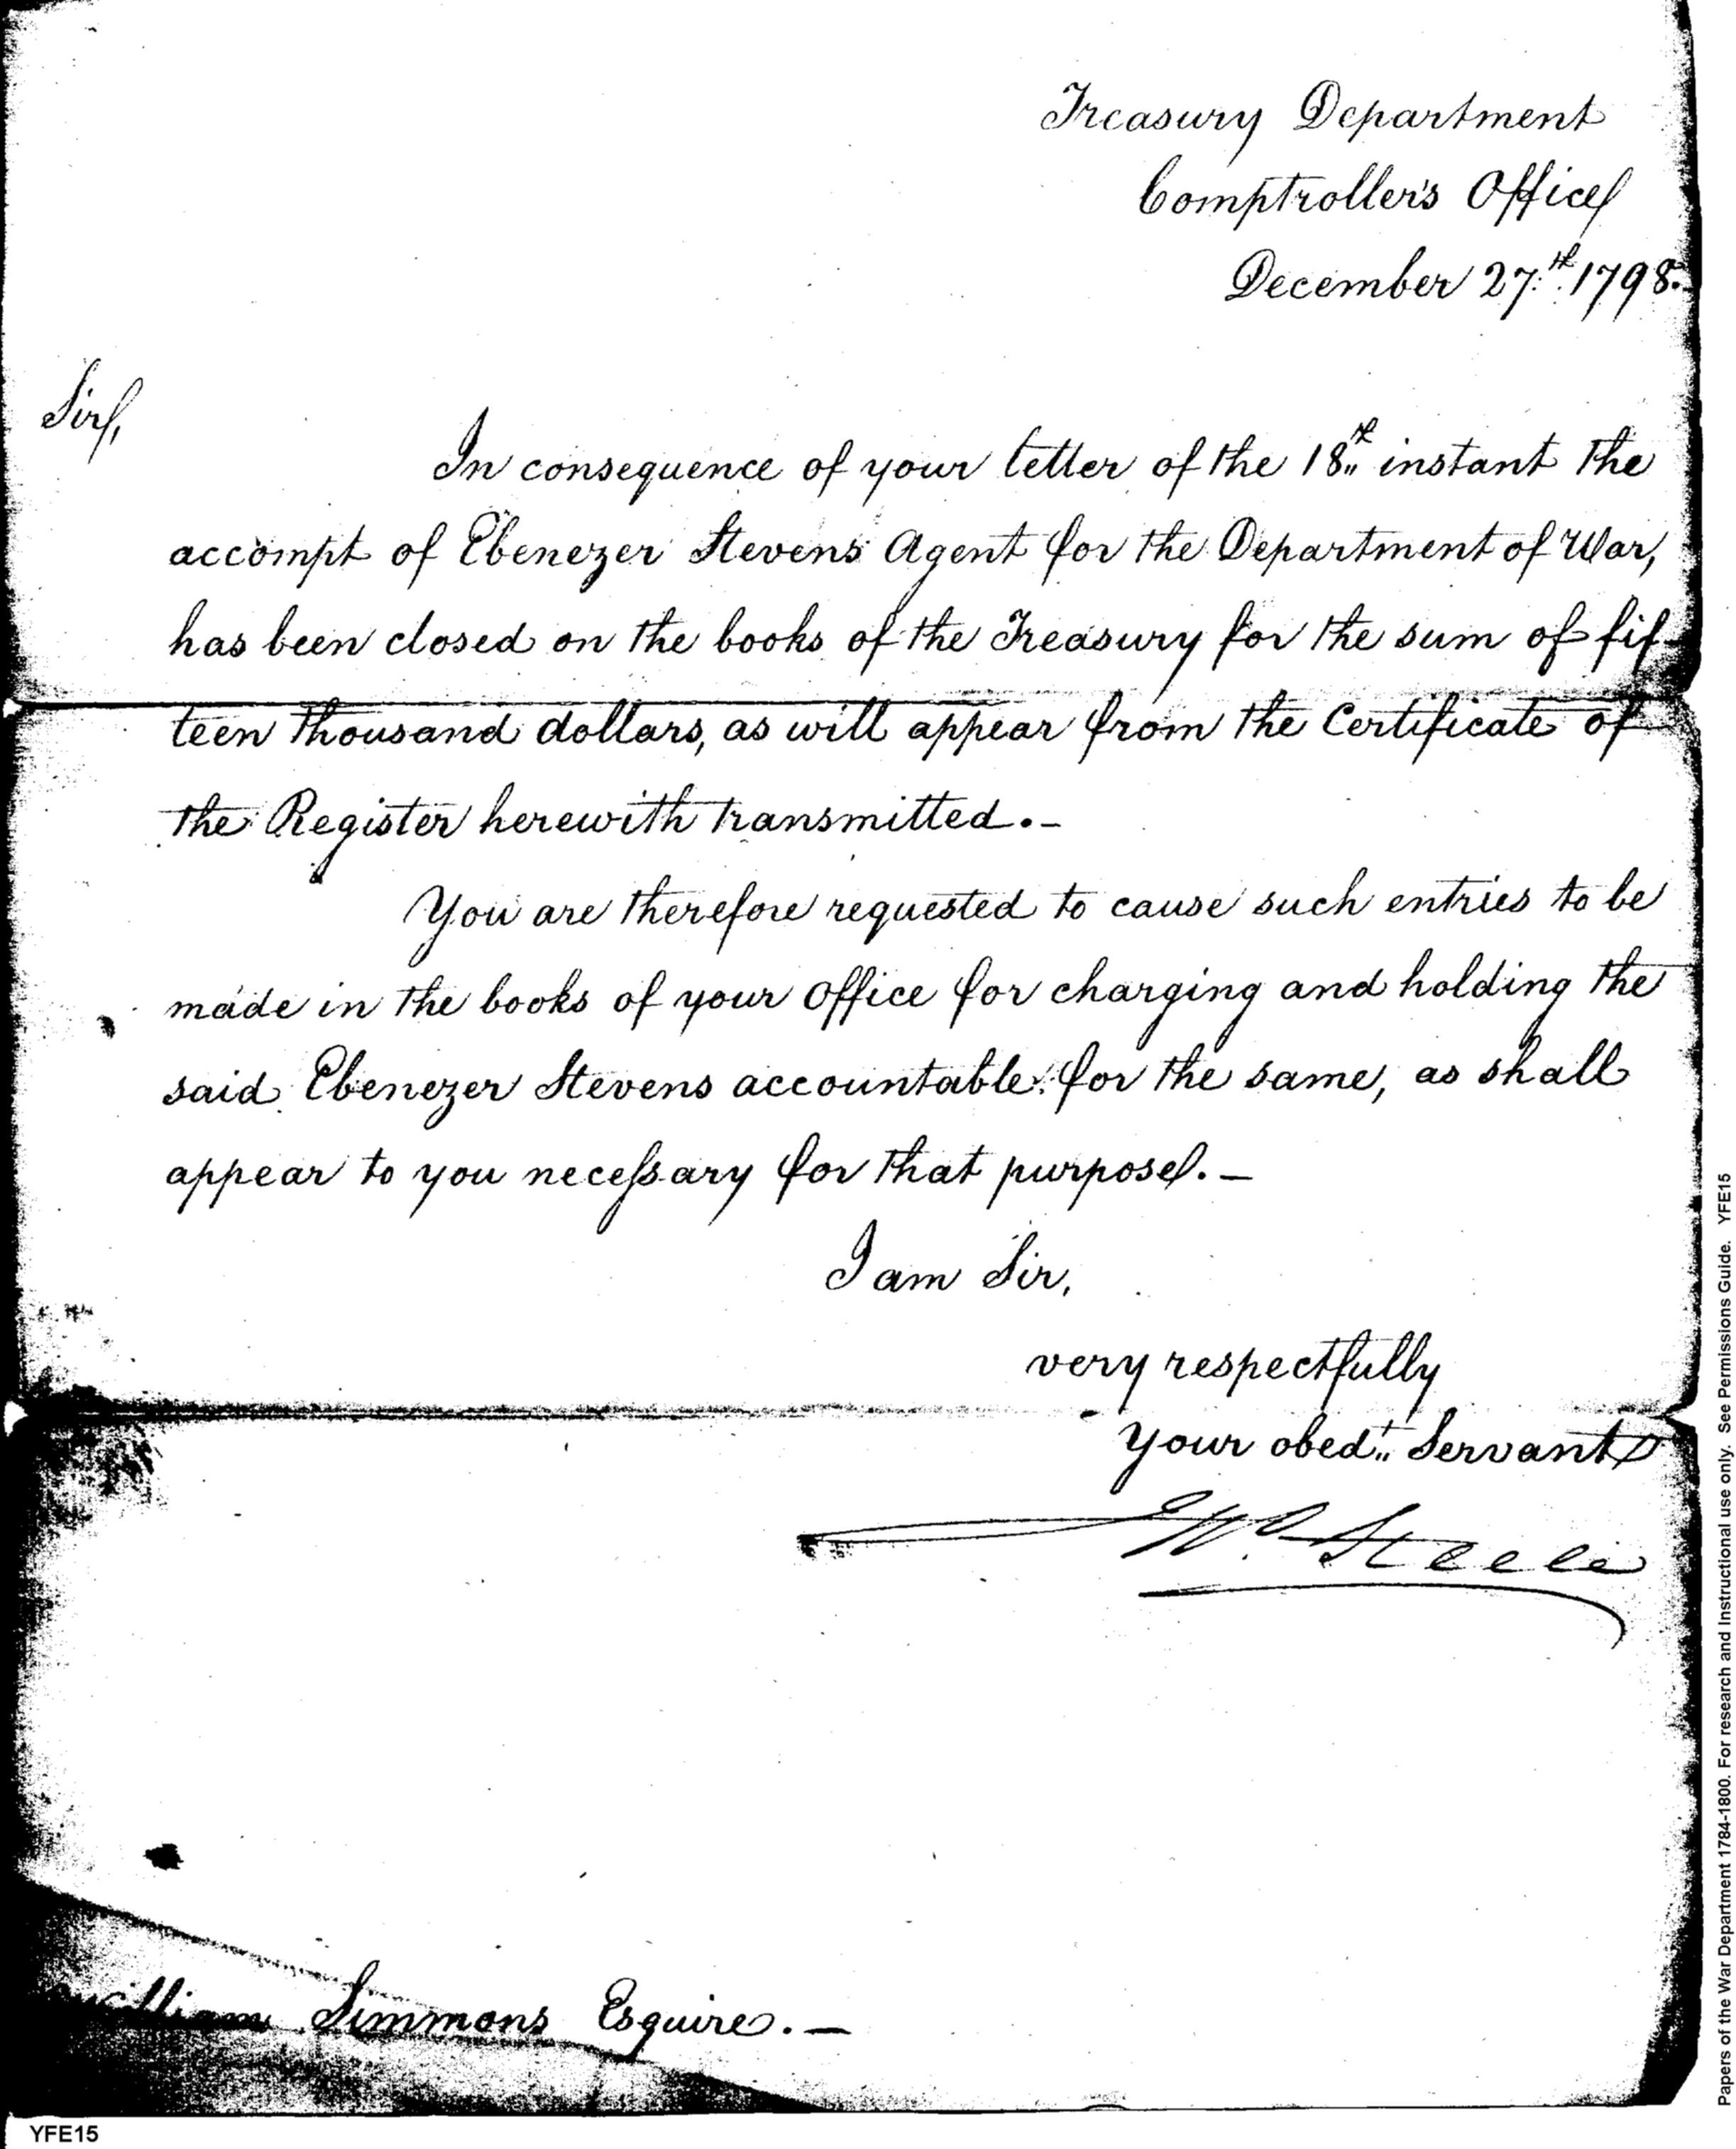 Treasury Department
Comptroller's Office
December 27th. 1798.
Sir,
In consequence of your letter of the 18th instant the
accompt of Ebenezer Stevens Agent for the Department of War,
has been closed on the books of the Treasury for the sum of fif-
teen thousand dollars, as will appear from the Certificate of
the Register herewith transmitted.-
You are therefore requested to cause such entries to be
made in the books of your Office for charging and holding the
said Ebenezer Stevens accountable for the same, as shall
appear to you necessary for that purpose. -
I am Sir,
very respectfully
Your obedt. Servant
Steele
William Simmons Esquire. -
YFE15
Papers of the War Department 1784-1800. For research and Instructional use only. See Permissions Guide. YFE15